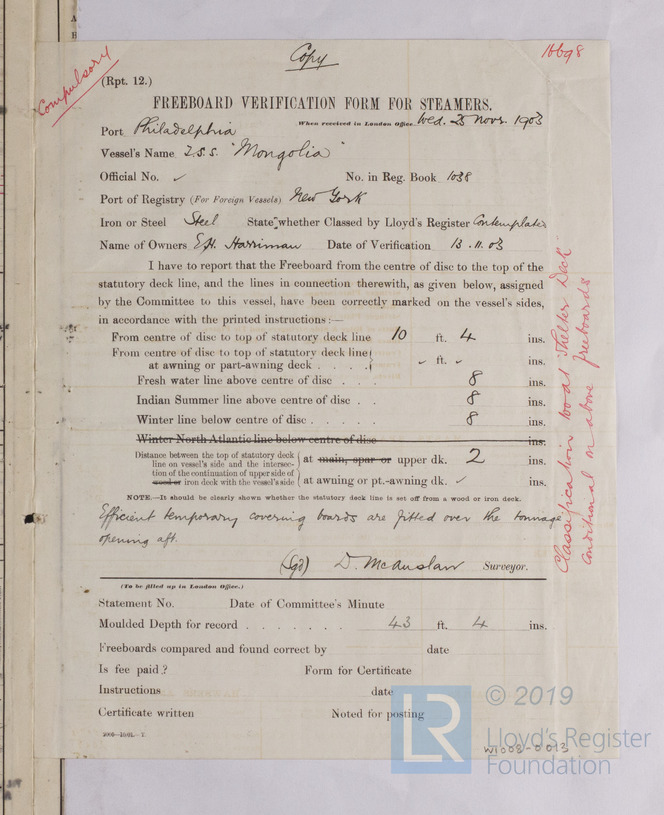 Copy
16698
Compulsory
(Rpt. 12.)
FREEBOARD VERIFICATION FORM FOR STEAMERS.
When received in London Office. Wed. 25 Novr. 1903
Port Philadelphia
Vessel's Name T.S.S. "Mongolia"
Official No. ✓ No. in Reg. Book 1038
Port of Registry (For Foreign Vessels) New York
Iron or Steel Steel State whether Classed by Lloyd's Register Contemplated
Name of Owners E.H. Harriman Date of Verification 13.11.03
I have to report that the Freeboard from the centre of disc to the top of the
statutory deck line, and the lines in connection therewith, as given below, assigned
by the Committee to this vessel, have been correctly marked on the vessel's sides,
in accordance with the printed instructions:—
From centre of disc to top of statutory deck line 10 ft. 4 ins.
From centre of disc to top of statutory deck line
at awning or part-awning deck . . . . ✓ ft. ✓ ins.
Fresh water line above centre of disc . . . 8 ins.
Indian Summer line above centre of disc . . 8 ins.
Winter line below centre of disc . . . . . 8 ins.
Winter North Atlantic line below centre of disc ins.
Distance between the top of statutory deck
line on vessel's side and the intersec-
tion of the continuation of upper side of
wood or iron deck with the vessel's side
at main, spar or upper dk. 2 ins.
at awning or pt.-awning dk. ✓ ins.
NOTE.—It should be clearly shown whether the statutory deck line is set off from a wood or iron deck.
Efficient temporary covering boards are fitted over the tonnage
opening aft.
(Sgd) D. McAuslan Surveyor.
Classification 100A1 Shelter Deck
Conditional on above freeboards
(To be filled up in London Office.)
Statement No. Date of Committee's Minute
Moulded Depth for record . . . . . . . 43 ft. 4 ins.
Freeboards compared and found correct by date
Is fee paid? Form for Certificate
Instructions date
Certificate written Noted for posting
W1003-0013
LR
© 2019
Lloyd's Register
Foundation